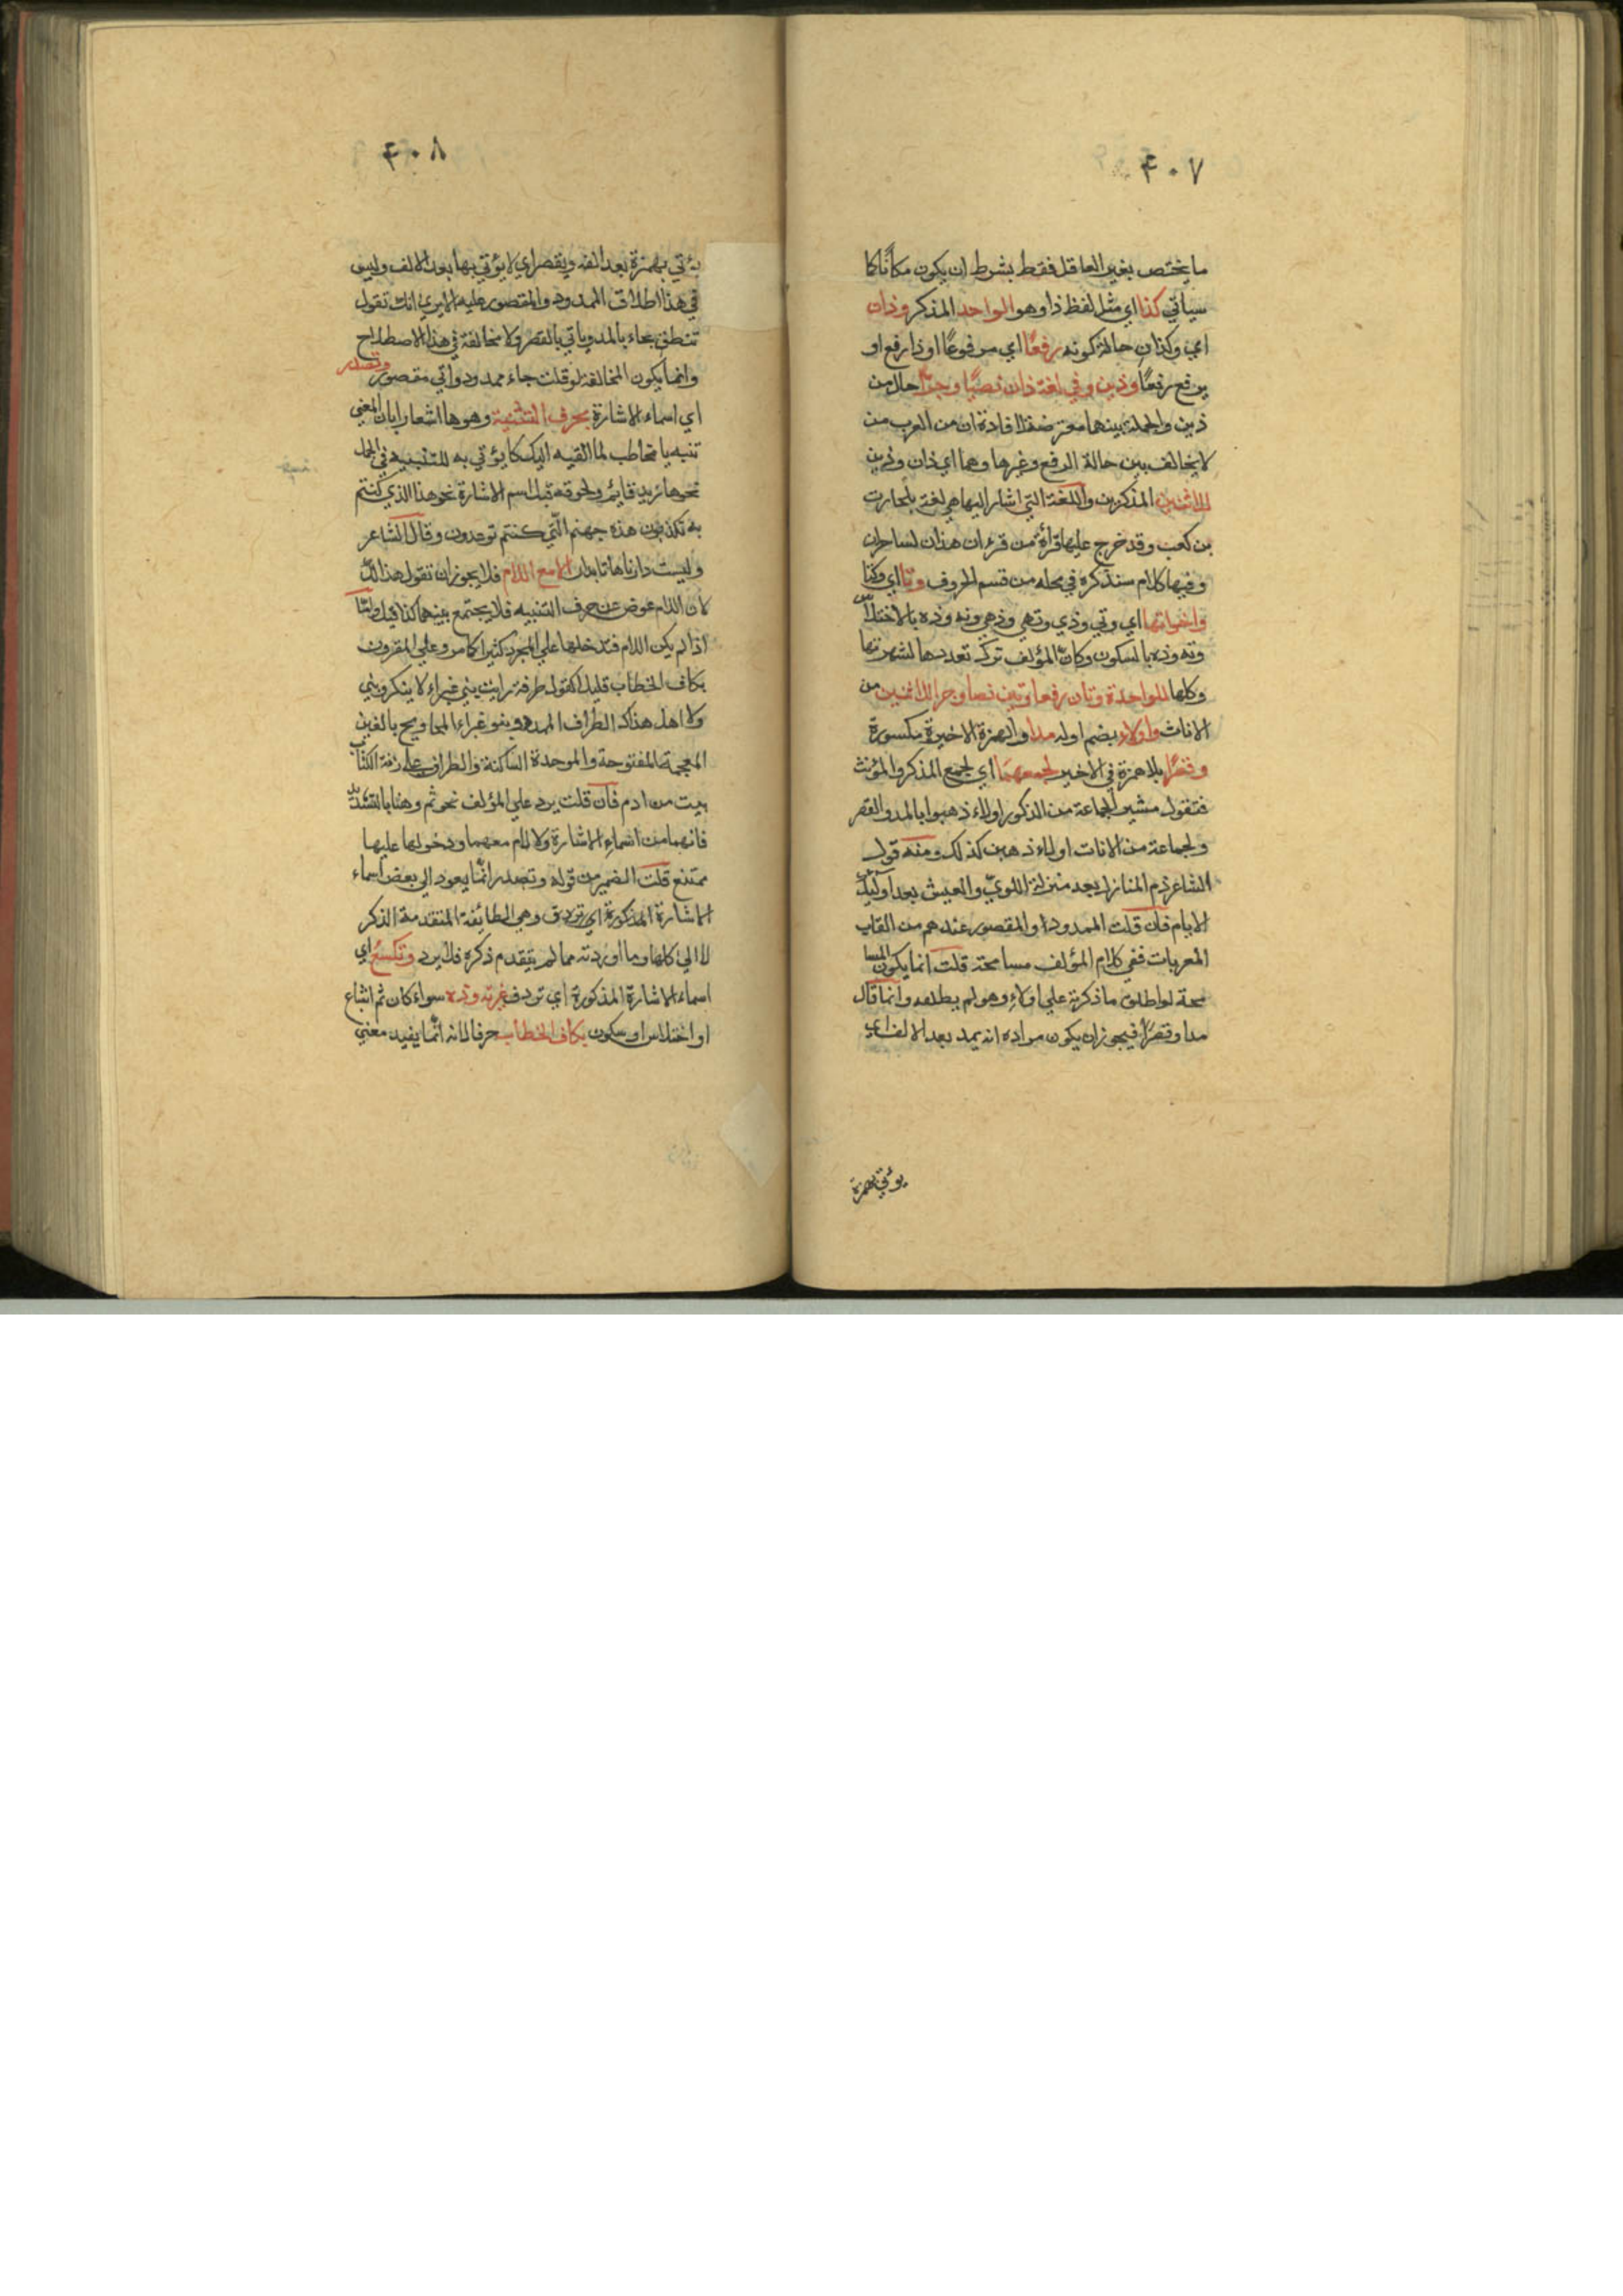 ۴۰۷
ما يختص بغير العاقل فقط بشرط ان يكون مكانا كما
سياتي كذا اي مثل لفظ ذا وهو الواحد المذكر وذان
اي وكذان حالة كونه رفعًا اي مرفوعًا او ذا رفع او
يرفع رفعًا وذين وفي لغة ذان نصبًا وجرًا حال من
ذين والجملة بينهما معترضة لافادة ان من العرب من
لا يخالف بين حالة الرفع وغيرها وهما اي ذان وذين
للاثنين المذكرين واللغة التي اشار اليها هي لغة بلحارث
بن كعب وقد خرج عليها قرأة من قرء ان هذان لساحران
وفيها كلام سنذكره في محله من قسم الحروف وتا اي وكذا
واخواتها اي وتي وذي وتهي وذهي وته وذه بالاختلاس
وته وذه بالسكون وكان المؤلف ترك تعديدها لشهرتها
وكلها للواحدة وتان رفعا وتين نصبا وجرا للاثنين من
الاناث واولاء بضم اوله مدا والهمزة الاخيرة مكسورة
وقصرًا بلا همزة في الاخير لجمعهما اي لجمع المذكر والمؤنث
فتقول مشير الجماعة من الذكور اولاء ذهبوا بالمد والقصر
ولجماعة من الاناث اولاء ذهبن كذلك ومنه قول
الشاعر ذم المنازل بعد منزلة اللوى والعيش بعد اولئك
الايام فان قلت الممدود او المقصور عندهم من القاب
المعربات ففي كلام المؤلف مسامحة قلت انما يكون المسا
محة لو اطلق ما ذكرته على اولاء وهو لم يطلقه وانما قال
مدا وقصرًا فيجوز ان يكون مراده انه يمد بعد الالف اي
يؤتي بهمزة
۴۰۸
يؤتي بهمزة بعد الفه ويقصر اي لا يؤتي بها بعد الالف وليس
في هذا اطلاق الممدود والمقصور عليه الا يري انك تقول
تنطق بجاء بالمد وياتي بالقصر ولا مخالفة في هذا الاصطلاح
وانما يكون المخالفة لو قلت جاء ممدود واتي مقصور وتصدر
اي اسماء الاشارة بحرف التنبيه وهو ها اشعارا بان المعني
تنبه يا مخاطب لما القيه اليك كما يؤتي به للتنبيه في الجمل
نحو ها زيد قائم ولحوقه قبل اسم الاشارة نحو هذا الذي كنتم
به تكذبون هذه جهنم التي كنتم توعدون وقال الشاعر
وليست دارنا هاتا بدار الا مع اللام فلا يجوز ان تقول هذا لك
لان اللام عوض عن حرف التنبيه فلا يجتمع بينهما كذا قيل واما
اذا لم يكن اللام فتدخلها علي المجرد كثيرا كما مر وعلي المقرون
بكاف الخطاب قليلا كقول طرفة رايت بني غبراء لا ينكرونني
ولا اهل هذاك الطراف الممدد وبنو غبراء المحاويج بالغين
المعجمة المفتوحة والموحدة الساكنة والطراف علي زنة الكتاب
بيت من ادم فان قلت يرد علي المؤلف نحو ثم وهنا بالتشديد
فانهما من اسماء الاشارة ولا لام معهما ودخولها عليها
ممتنع قلت الضمير من قوله وتصدر انما يعود الي بعض اسماء
الاشارة المذكورة اي وهي الطائفة المتقدمة الذكر
لا الي كلها وما اوردته مما لم يتقدم ذكره فلا يرد وتكسع اي
اسماء الاشارة المذكورة اي تردف غير ته وذه سواء كان ثم اشباع
او اختلاس او سكون بكاف الخطاب حرفا لانه انما يفيد معني